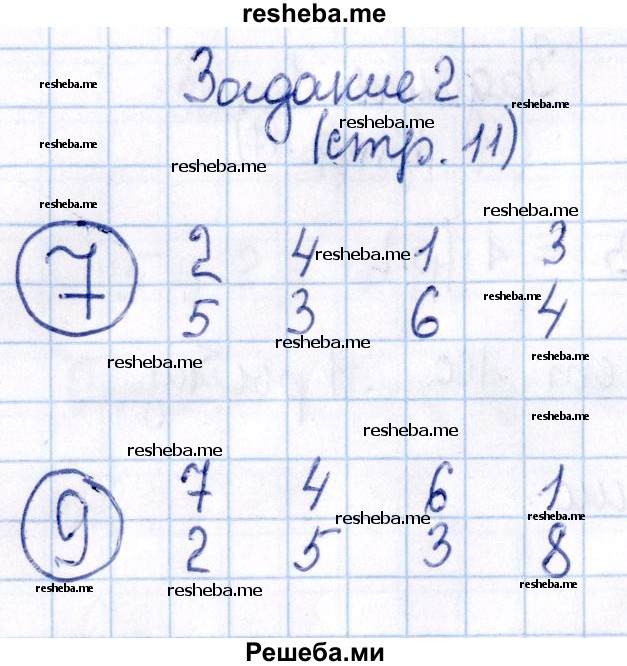 resheba.me
Задание 2
resheba.me
resheba.me
resheba.me
(стр. 11)
resheba.me
resheba.me
resheba.me
resheba.me
7 2 4 1 3
resheba.me
5 3 6 4
resheba.me
resheba.me
resheba.me
resheba.me
resheba.me
resheba.me
resheba.me
9 7 4 6 1
resheba.me
resheba.me
2 5 3 8
resheba.me
resheba.me
resheba.me
Решеба.ми